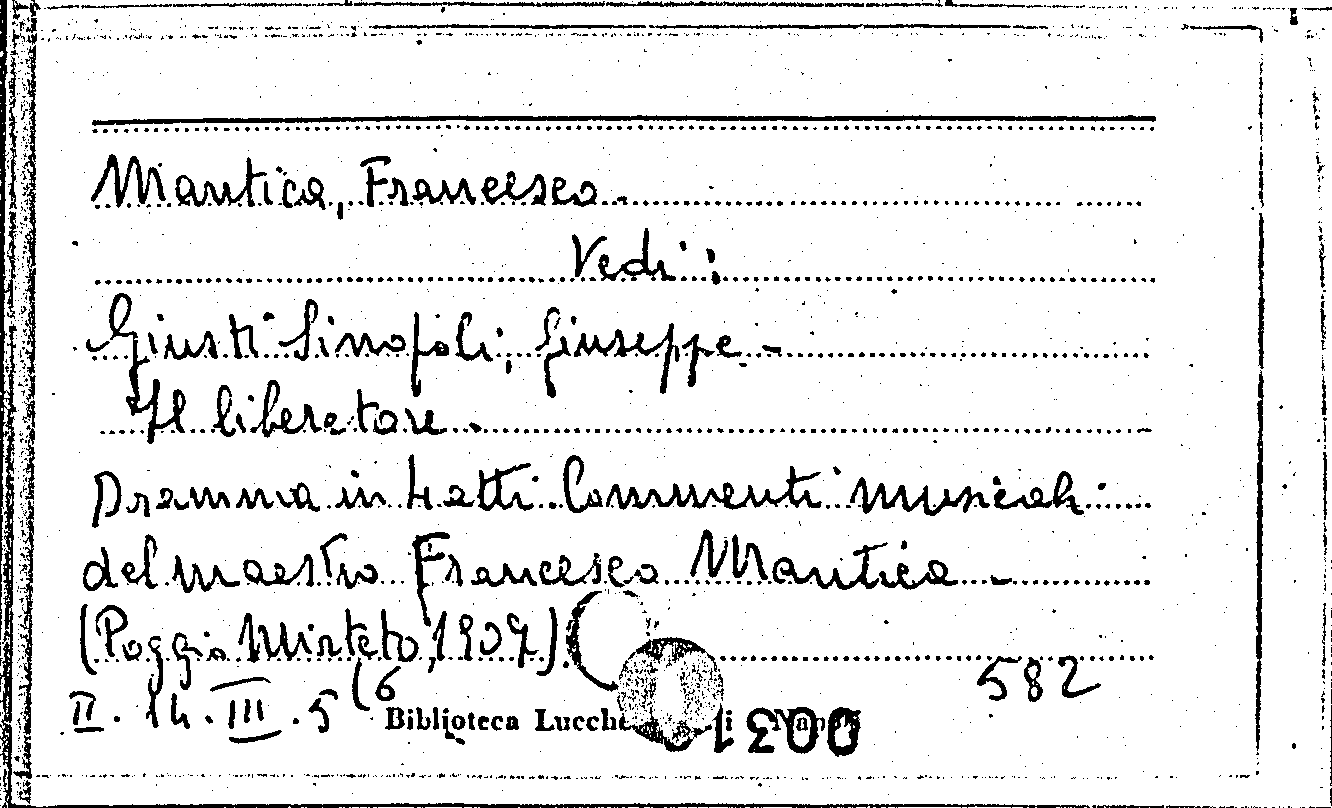 Mantica, Francesco.
Vedi:
Giusti Sinopoli, Giuseppe -
Il liberatore.
Dramma in 4 atti. Commenti musicali
del maestro Francesco Mantica -
(Poggio Mirteto, 1907).
II. 14. III. 5 (6
582
Biblioteca Lucchesi Palli Napoli